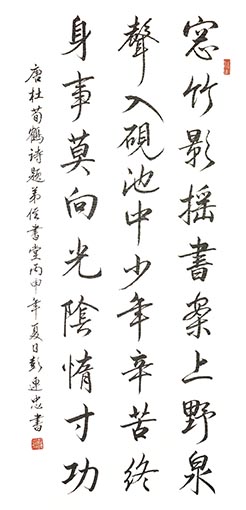 窓竹影摇書案上野泉
聲入硯池中少年辛苦終
身事莫向光陰惰寸功
唐杜荀鶴诗題弟侄書堂丙申年夏日彭連忠書